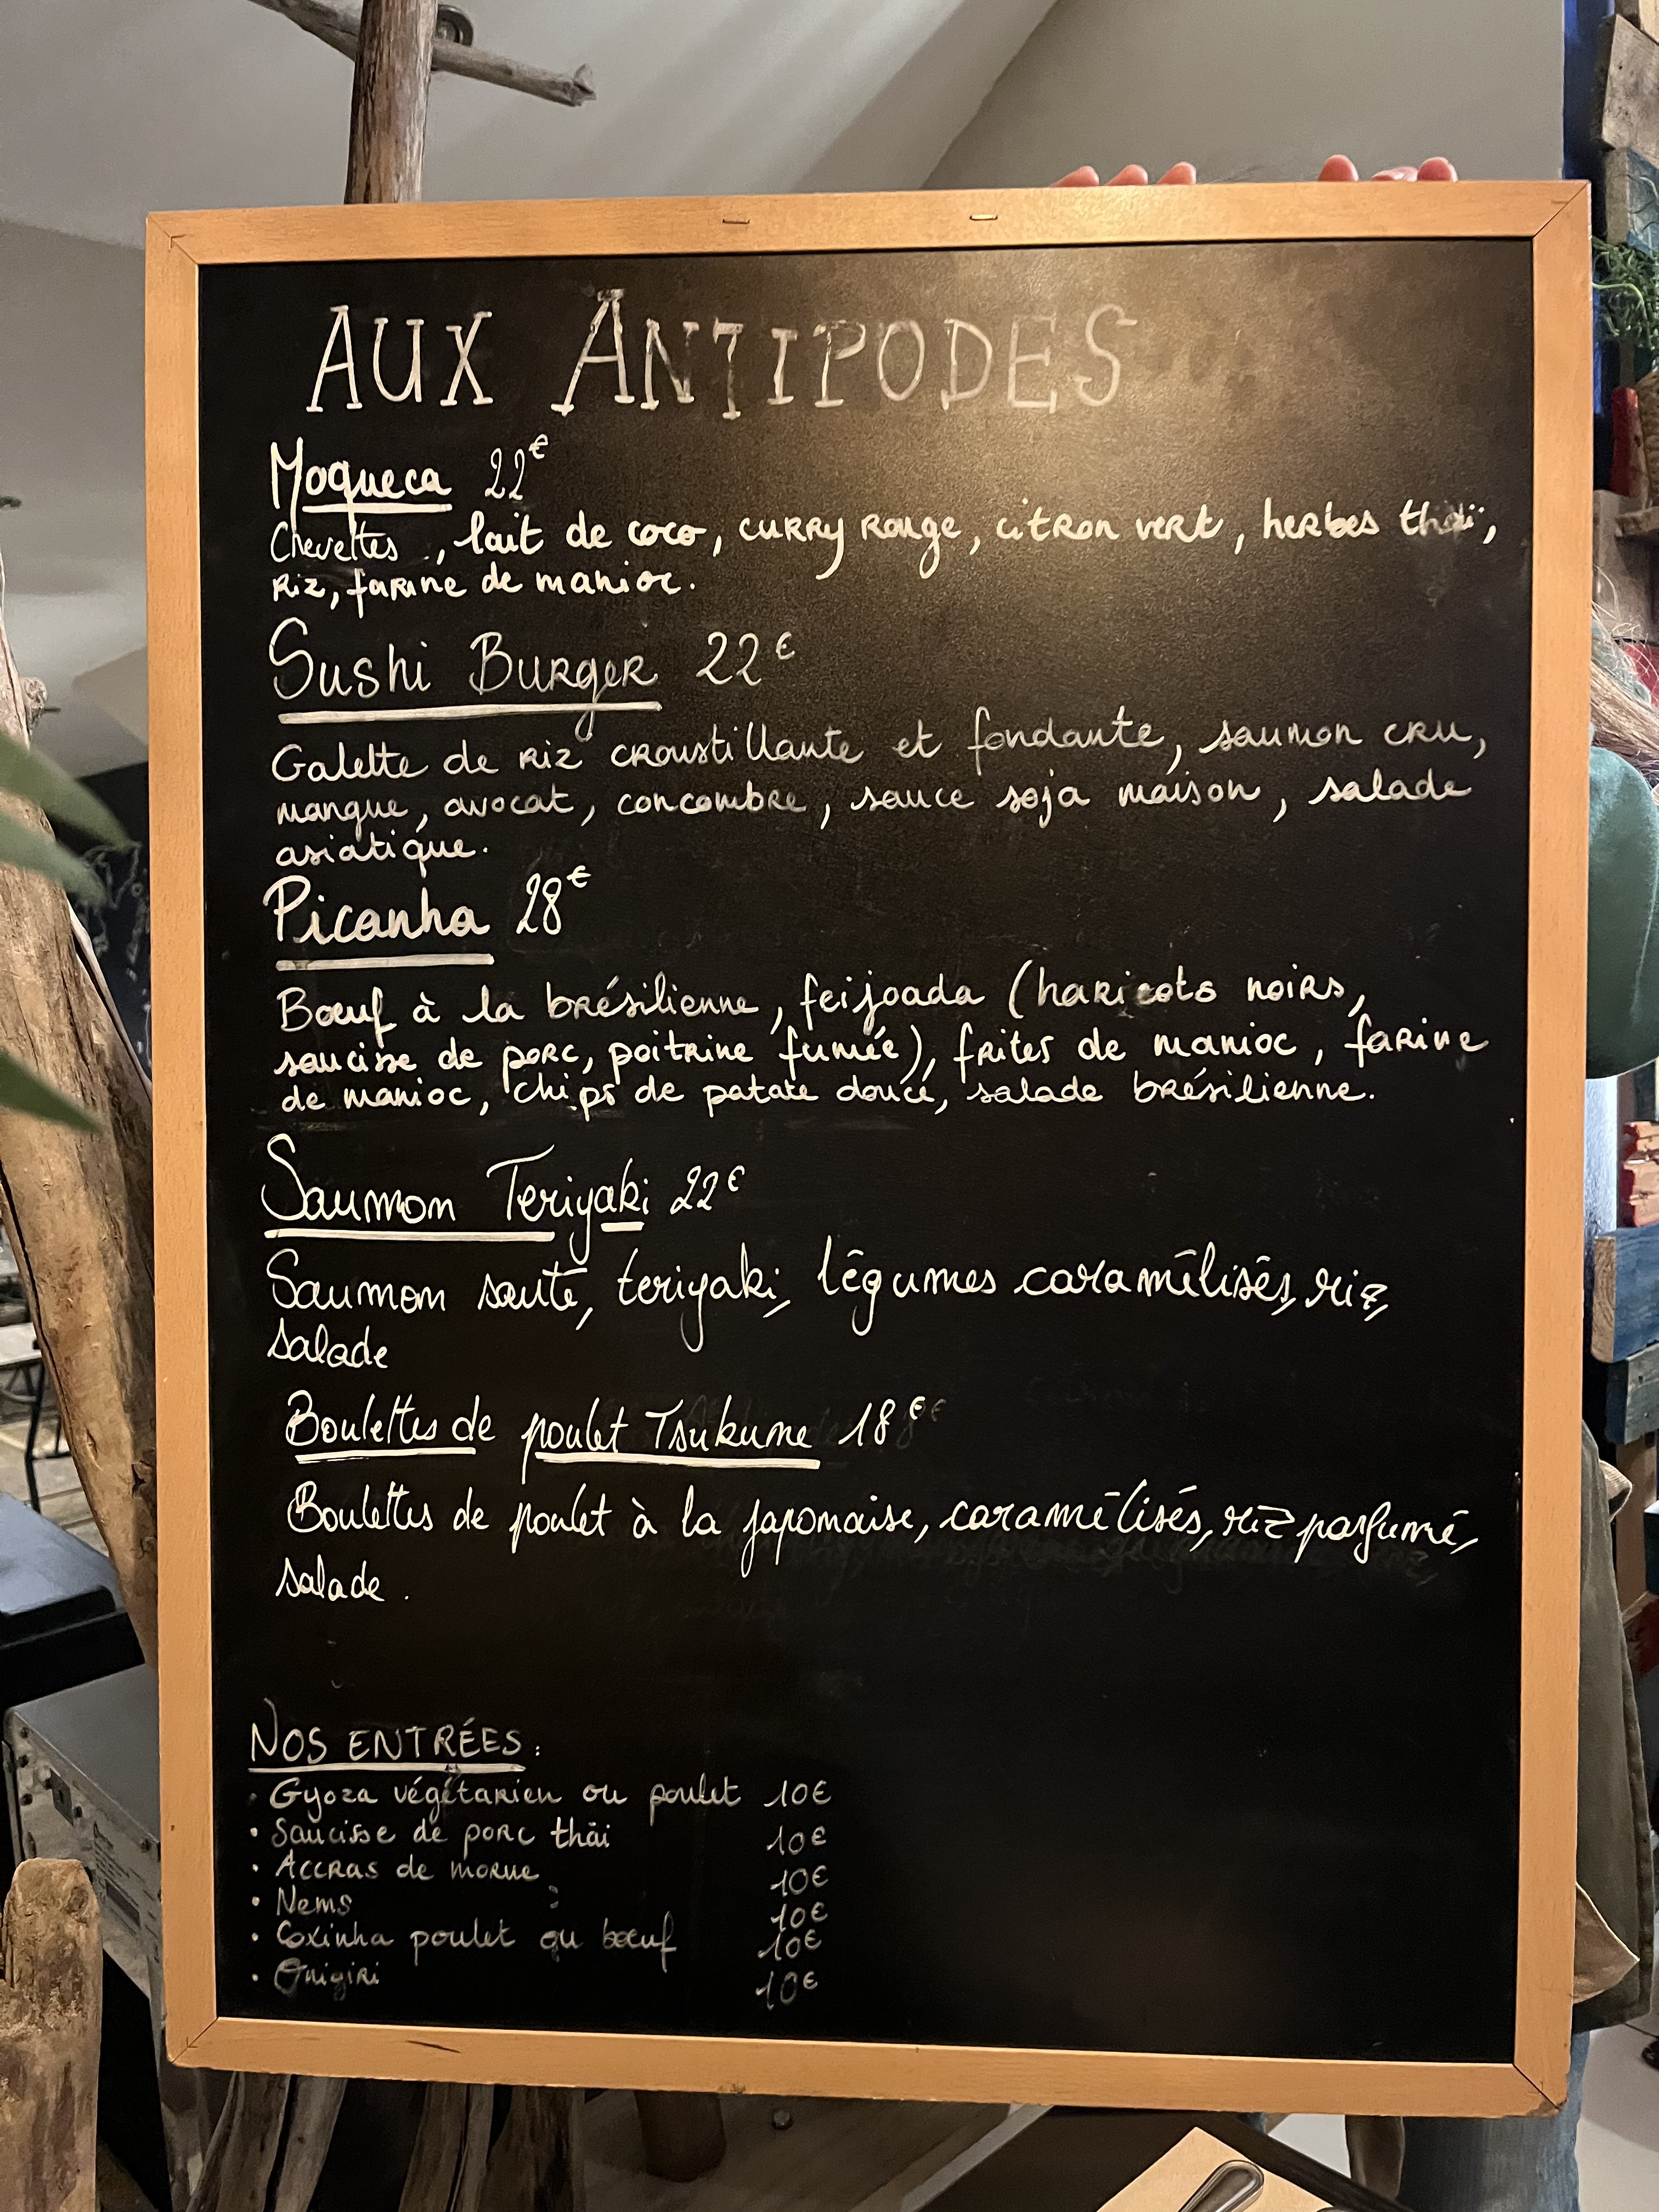 AUX ANTIPODES
Moqueca 22€
Chevettes, lait de coco, curry rouge, citron vert, herbes thaï,
Riz, farine de manioc.
Sushi Burger 22€
Galette de riz croustillante et fondante, saumon cru,
mangue, avocat, concombre, sauce soja maison, salade
asiatique.
Picanha 28€
Bœuf à la brésilienne, feijoada (haricots noirs,
saucisse de porc, poitrine fumée), frites de manioc, farine
de manioc, chips de patate douce, salade brésilienne.
Saumon Teriyaki 22€
Saumon sauté, teriyaki, légumes caramélisés, riz,
salade
Boulettes de poulet Tsukune 18€
Boulettes de poulet à la japonaise, caramélisés, riz parfumé,
salade.
NOS ENTRÉES:
• Gyoza végétarien ou poulet 10€
• Saucisse de porc thaï 10€
• Accras de morue 10€
• Nems 10€
• Coxinha poulet ou bœuf 10€
• Onigiri 10€